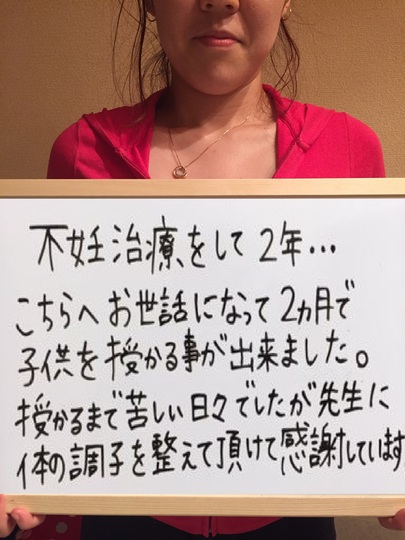 不妊治療をして2年...
こちらへお世話になって2ヵ月で
子供を授かる事が出来ました。
授かるまで苦しい日々でしたが先生に
体の調子を整えて頂けて感謝しています